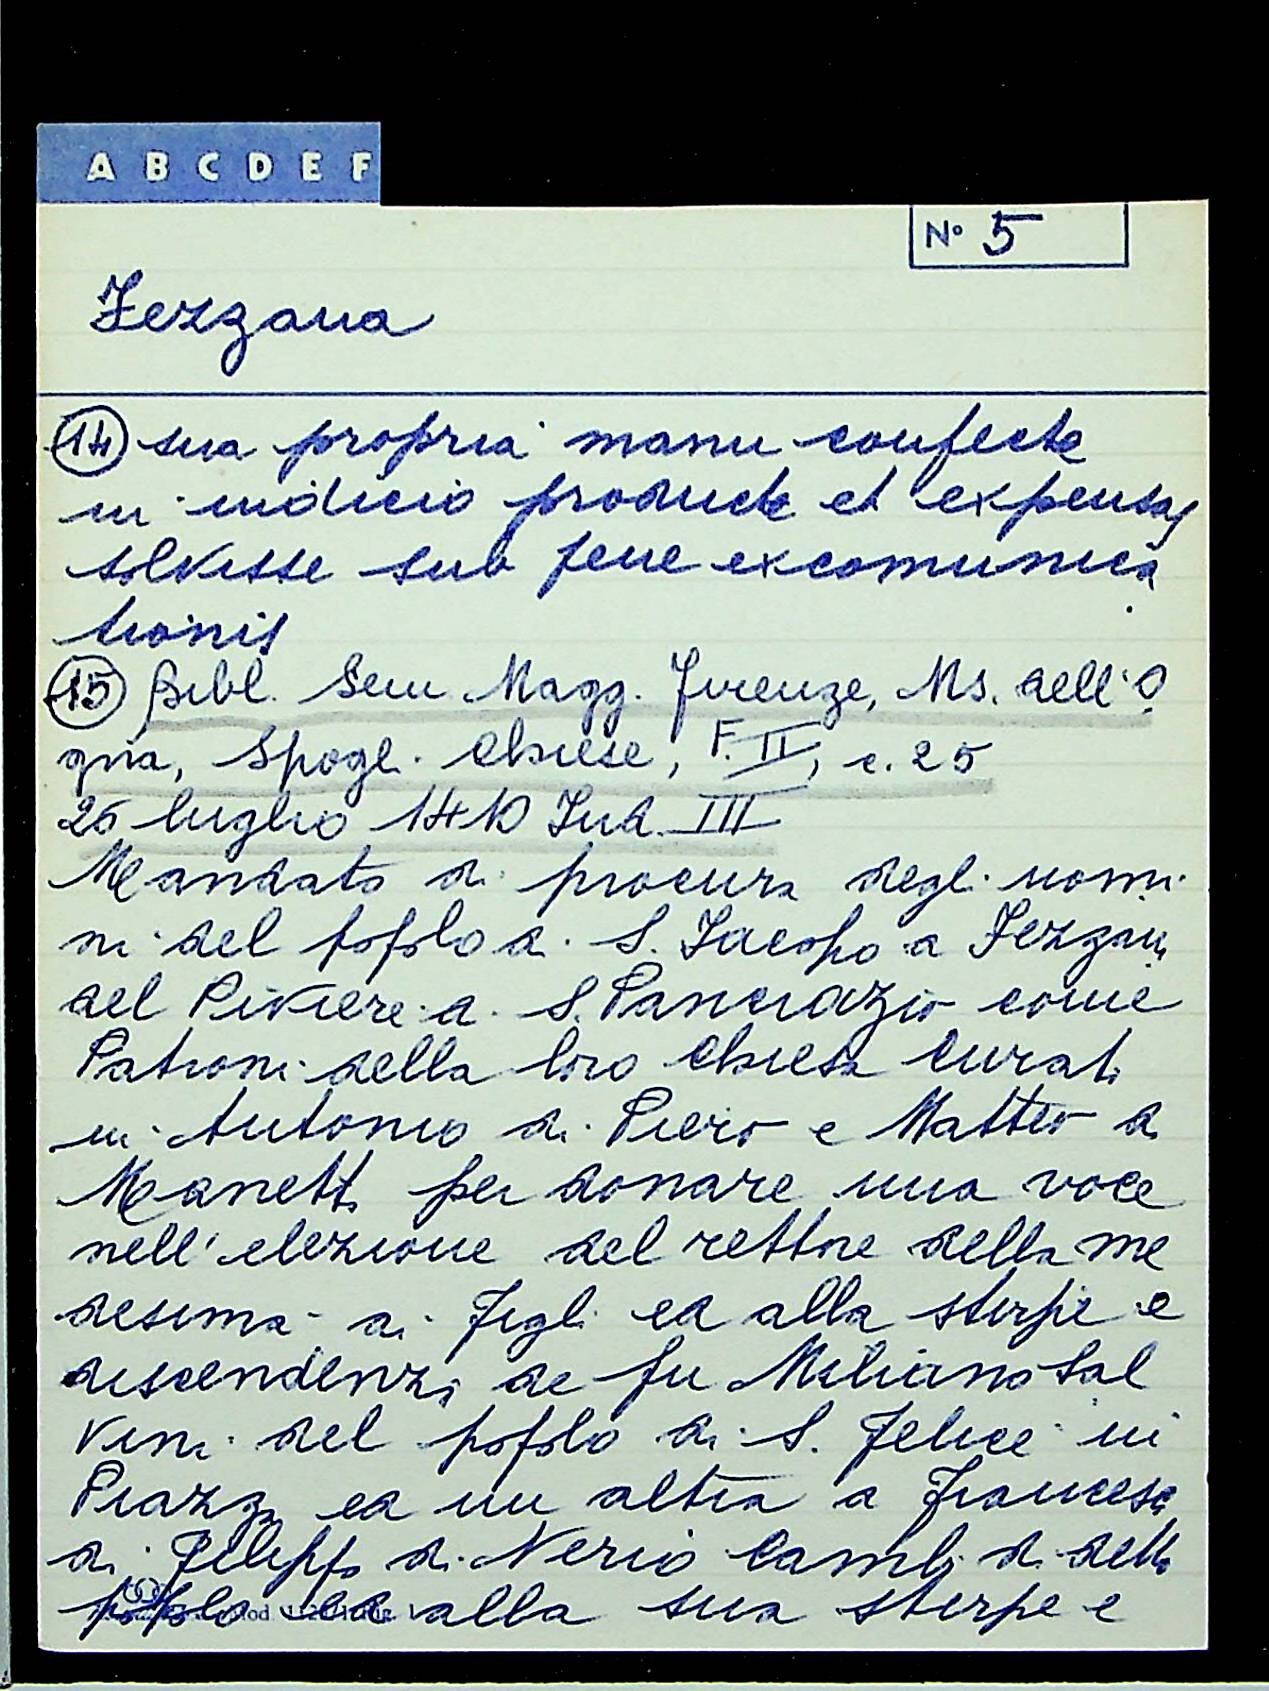 A B C D E F
N° 5
Fezzana
14 sua propria manu confecte
in iudicio producte et expensas
solvisse sub pene excomunica
tionis
15 Bibl. Sem Magg. Firenze, Ms. dell'O
gna, Spogl. Chiese, F. II, c. 25
25 luglio 1410 Ind. III
Mandato di procura degli uomi
ni del popolo di S. Iacopo a Fezzana
del Piviere di S. Pancrazio come
Patroni della loro Chiesa Curati
in Antonio di Piero e Matteo di
Manetti per donare una voce
nell'elezione del rettore della me
desima ai Figli ed alla stirpe e
discendenzi de fu Miliano Sal
vini del popolo di S. Felice in
Piazza ed un altra a Francesco
di Filippo di Nerio Cambi di detto
popolo ed alla sua stirpe e